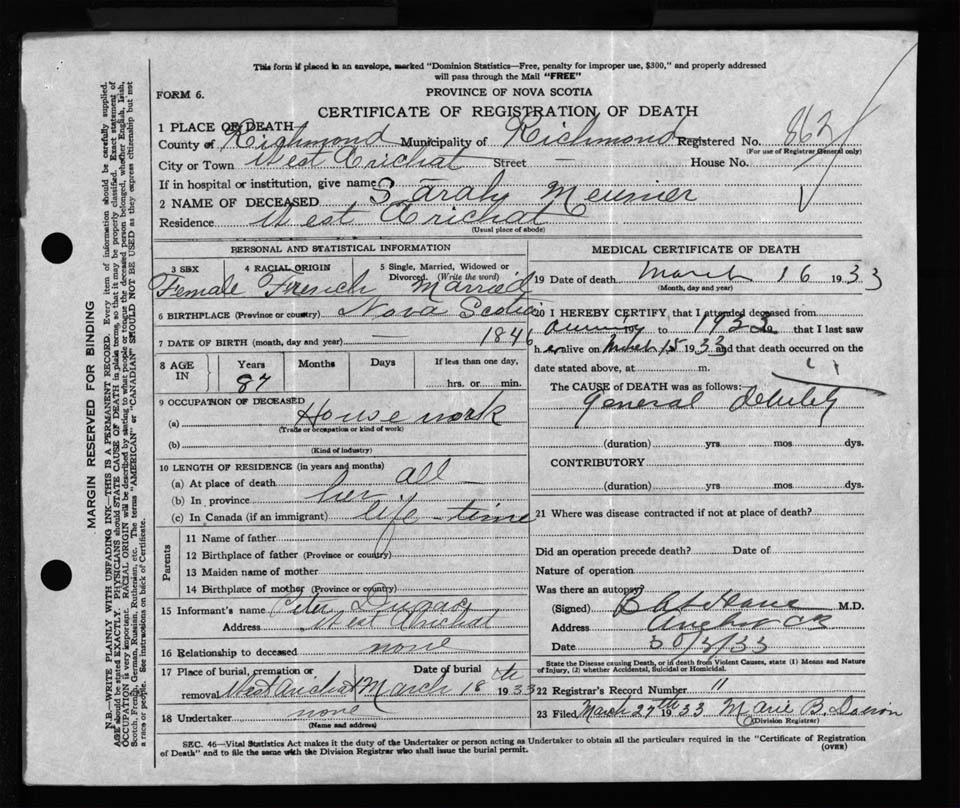 This form if placed in an envelope, marked "Dominion Statistics—Free, penalty for improper use, $300," and properly addressed
will pass through the Mail "FREE"
FORM 6.
PROVINCE OF NOVA SCOTIA
CERTIFICATE OF REGISTRATION OF DEATH
1 PLACE OF DEATH
County of Richmond Municipality of Richmond Registered No.
(For use of Registrar General only)
City or Town West Arichat Street — House No.
If in hospital or institution, give name
2 NAME OF DECEASED Sarah Meunier
Residence West Arichat
(Usual place of abode)
PERSONAL AND STATISTICAL INFORMATION
3 SEX 4 RACIAL ORIGIN 5 Single, Married, Widowed or Divorced. (Write the word)
Female French Married
6 BIRTHPLACE (Province or country) Nova Scotia
7 DATE OF BIRTH (month, day and year) — 1846
8 AGE IN Years 87 Months Days If less than one day, hrs. or min.
9 OCCUPATION OF DECEASED
(a) House work
(Trade or occupation or kind of work)
(b)
(Kind of industry)
10 LENGTH OF RESIDENCE (in years and months)
(a) At place of death all
(b) In province her
(c) In Canada (if an immigrant) life-time
Parents
11 Name of father
12 Birthplace of father (Province or country)
13 Maiden name of mother
14 Birthplace of mother (Province or country)
15 Informant's name
Address West Arichat
16 Relationship to deceased none
17 Place of burial, cremation or removal West Arichat Date of burial March 18th 1933
18 Undertaker none
(Name and address)
MEDICAL CERTIFICATE OF DEATH
19 Date of death March 16 1933
(Month, day and year)
20 I HEREBY CERTIFY, that I attended deceased from
to 193 that I last saw
her alive on March 15 1933 and that death occurred on the
date stated above, at m.
The CAUSE OF DEATH was as follows:
General Debility
(duration) yrs mos dys.
CONTRIBUTORY
(duration) yrs mos dys.
21 Where was disease contracted if not at place of death?
Did an operation precede death? Date of
Nature of operation
Was there an autopsy?
(Signed) M.D.
Address
Date 30/3/33
State the Disease causing Death, or in death from Violent Causes, state (1) Means and Nature
of Injury, (2) whether Accidental, Suicidal or Homicidal.
22 Registrar's Record Number 11
23 Filed March 27th 1933 Marie B.
(Division Registrar)
SEC. 46—Vital Statistics Act makes it the duty of the Undertaker or person acting as Undertaker to obtain all the particulars required in the "Certificate of Registration
of Death" and to file the same with the Division Registrar who shall issue the burial permit.
(OVER)
MARGIN RESERVED FOR BINDING
N.B.—WRITE PLAINLY WITH UNFADING INK—THIS IS A PERMANENT RECORD. Every item of information should be carefully supplied.
AGE should be stated EXACTLY. PHYSICIANS should STATE CAUSE OF DEATH in plain terms, so that it may be properly classified. Exact statement of
OCCUPATION is very important. RACIAL ORIGIN will be described by stating to what people or tongue the deceased person belonged, whether English, Irish,
Scotch, French, German, Russian, Ruthenian, etc. The terms "AMERICAN" or "CANADIAN" SHOULD NOT BE USED as they express citizenship but not
a race or people. See instructions on back of Certificate.